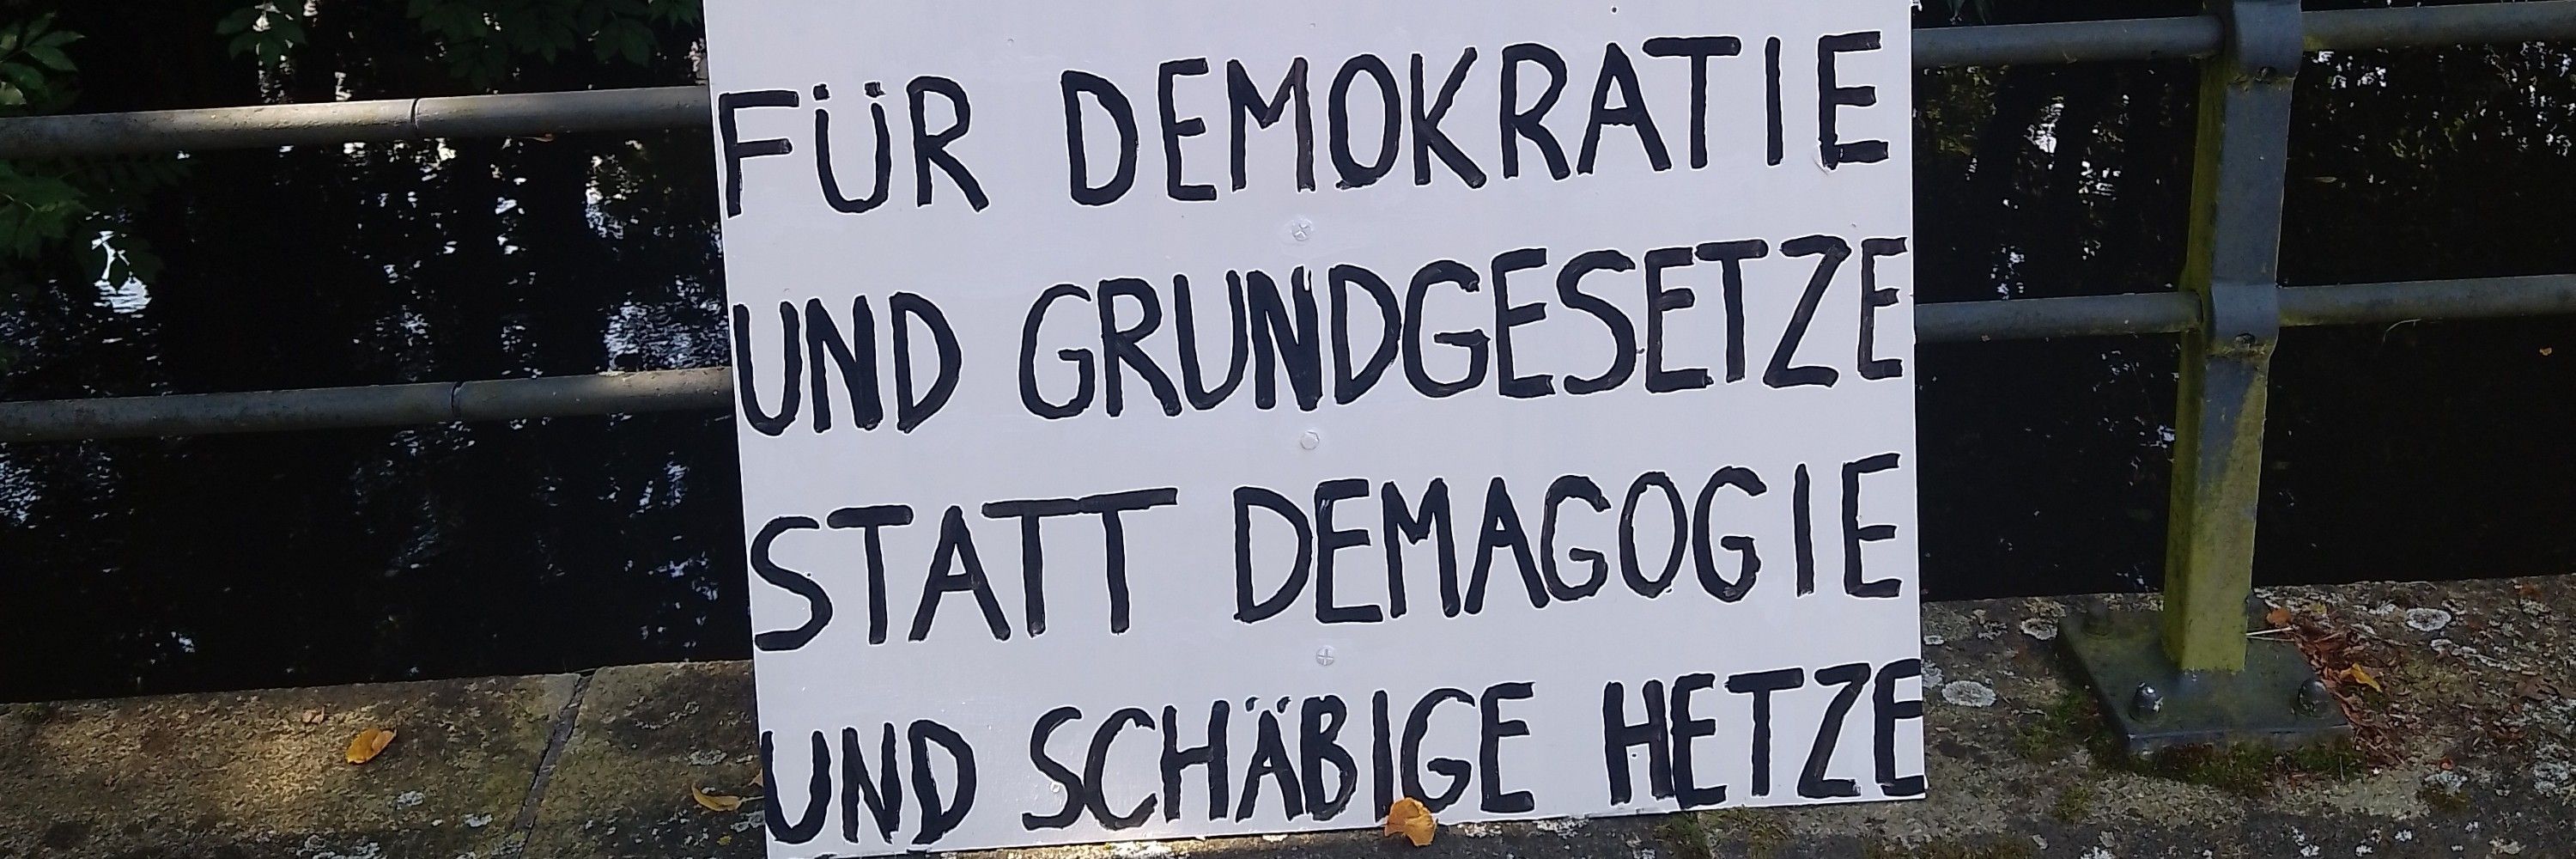 FÜR DEMOKRATIE
UND GRUNDGESETZE
STATT DEMAGOGIE
UND SCHÄBIGE HETZE